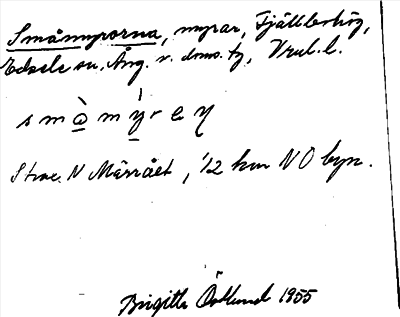 Småmyrorna, myrar, Fjällbohög,
Edsele sn, Ång. v. dms. tg, Vrul. l.
s m à m ý r e y
Strax N Märrået, 1/2 km NO byn.
Birgitta Östlund 1955